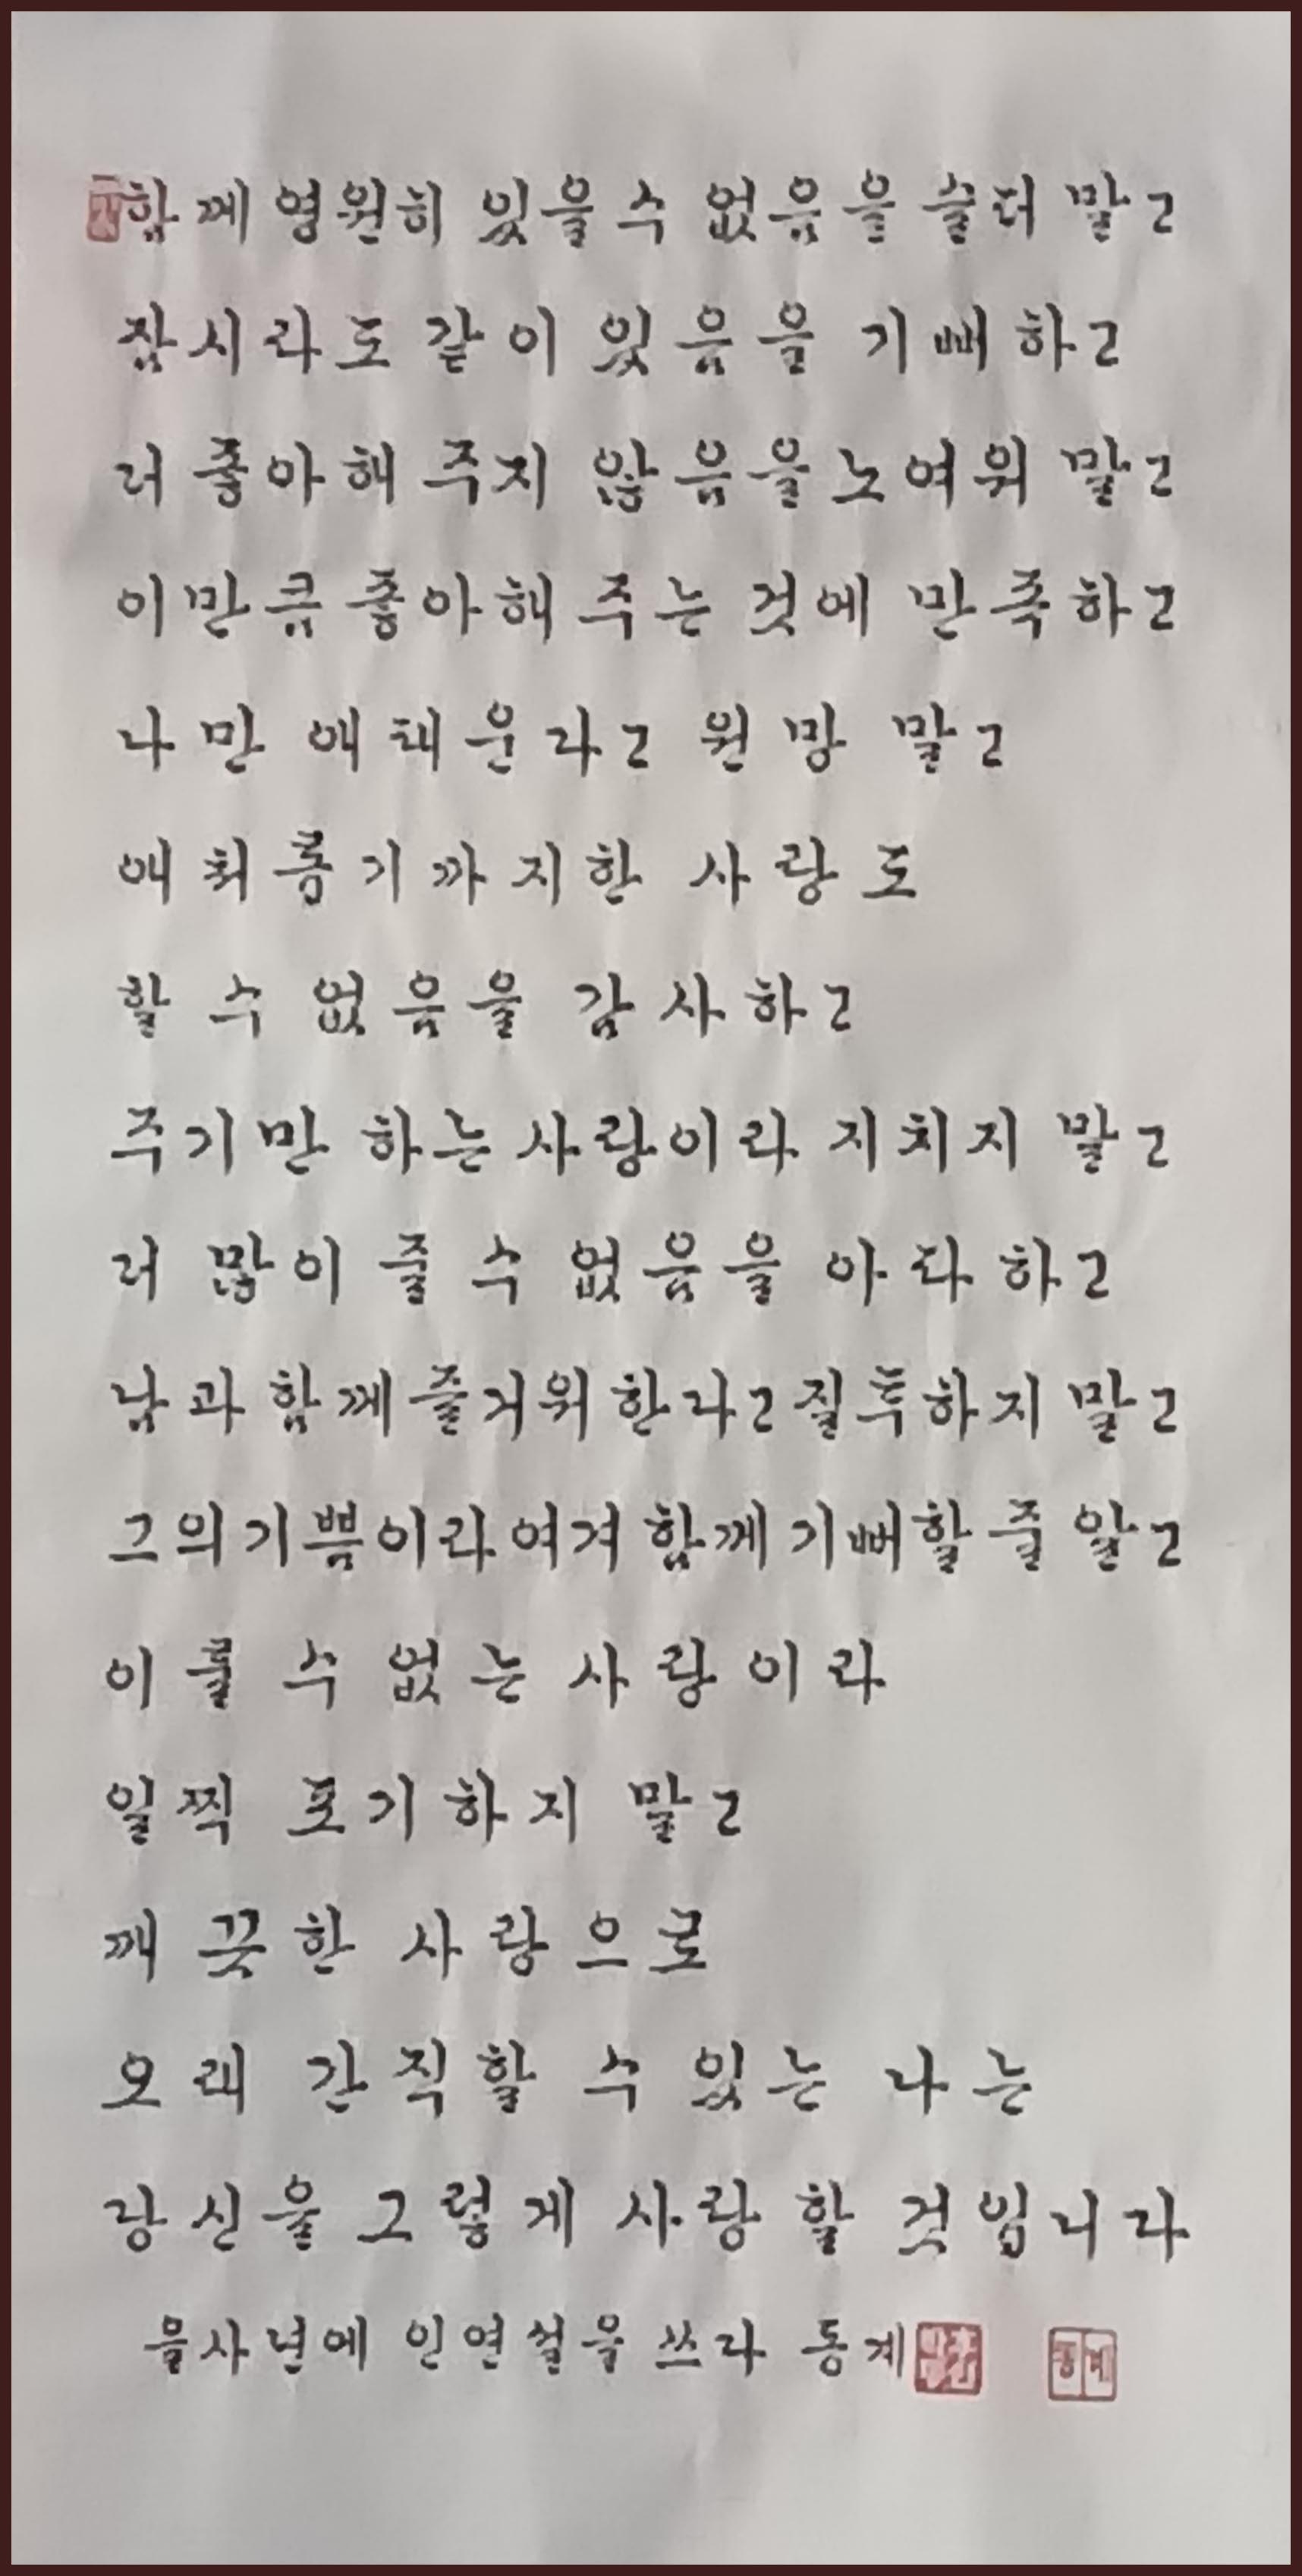 함께 영원히 있을 수 없음을 슬퍼 말고
잠시라도 같이 있음을 기뻐하고
더 좋아해 주지 않음을 노여워 말고
이만큼 좋아해 주는 것에 만족하고
나만 애태운다고 원망 말고
애처롭기까지한 사랑도
할 수 없음을 감사하고
주기만 하는 사랑이라 지치지 말고
더 많이 줄 수 없음을 아파하고
남과 함께 즐거워한다고 질투하지 말고
그의 기쁨이라 여겨 함께 기뻐할 줄 알고
이룰 수 없는 사랑이라
일찍 포기하지 말고
깨끗한 사랑으로
오래 간직할 수 있는 나는
당신을 그렇게 사랑 할 것입니다
을사년에 인연설을 쓰다 동계
동계